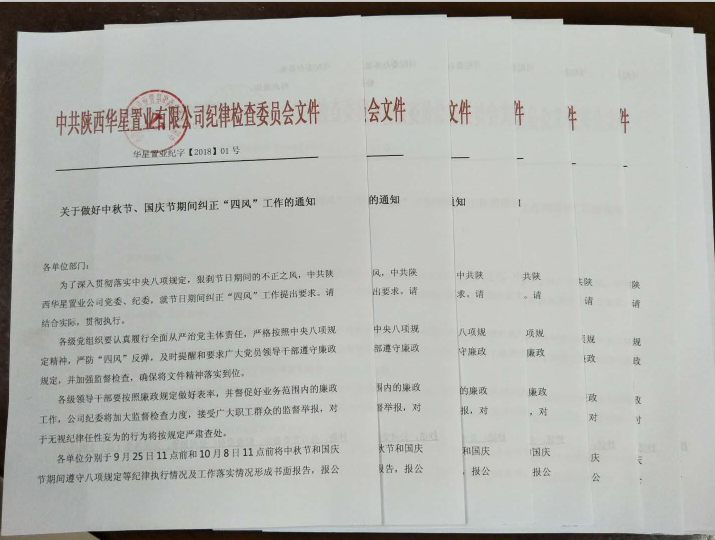 中共陕西华星置业有限公司纪律检查委员会文件
华星置业纪字【2018】01号
关于做好中秋节、国庆节期间纠正“四风”工作的通知
各单位部门：
为了深入贯彻落实中央八项规定，狠刹节日期间的不正之风，中共陕
西华星置业公司党委、纪委，就节日期间纠正“四风”工作提出要求。请
结合实际，贯彻执行。
各级党组织要认真履行全面从严治党主体责任，严格按照中央八项规
定精神，严防“四风”反弹，及时提醒和要求广大党员领导干部遵守廉政
规定，并加强监督检查，确保将文件精神落实到位。
各级领导干部要按照廉政规定做好表率，并督促好业务范围内的廉政
工作。公司纪委将加大监督检查力度，接受广大职工群众的监督举报，对
于无视纪律任性妄为的行为将按规定严肃查处。
各单位分别于9月25日11点前和10月8日11点前将中秋节和国庆
节期间遵守八项规定等纪律执行情况及工作落实情况形成书面报告，报公
员会文件
的通知
风，中共陕
出要求。请
中央八项规
部遵守廉政
围内的廉政
督举报，对
秋节和国庆
报告，报公
文件
通知
中共陕
要求。请
八项规
守廉政
的廉政
报，对
节和国庆
告，报公
件
共陕
请
项规
廉政
廉政
对
国庆
报公
件
陕
请
规
政
政
对
庆
公
件
陕
请
规
政
政
对
庆
公